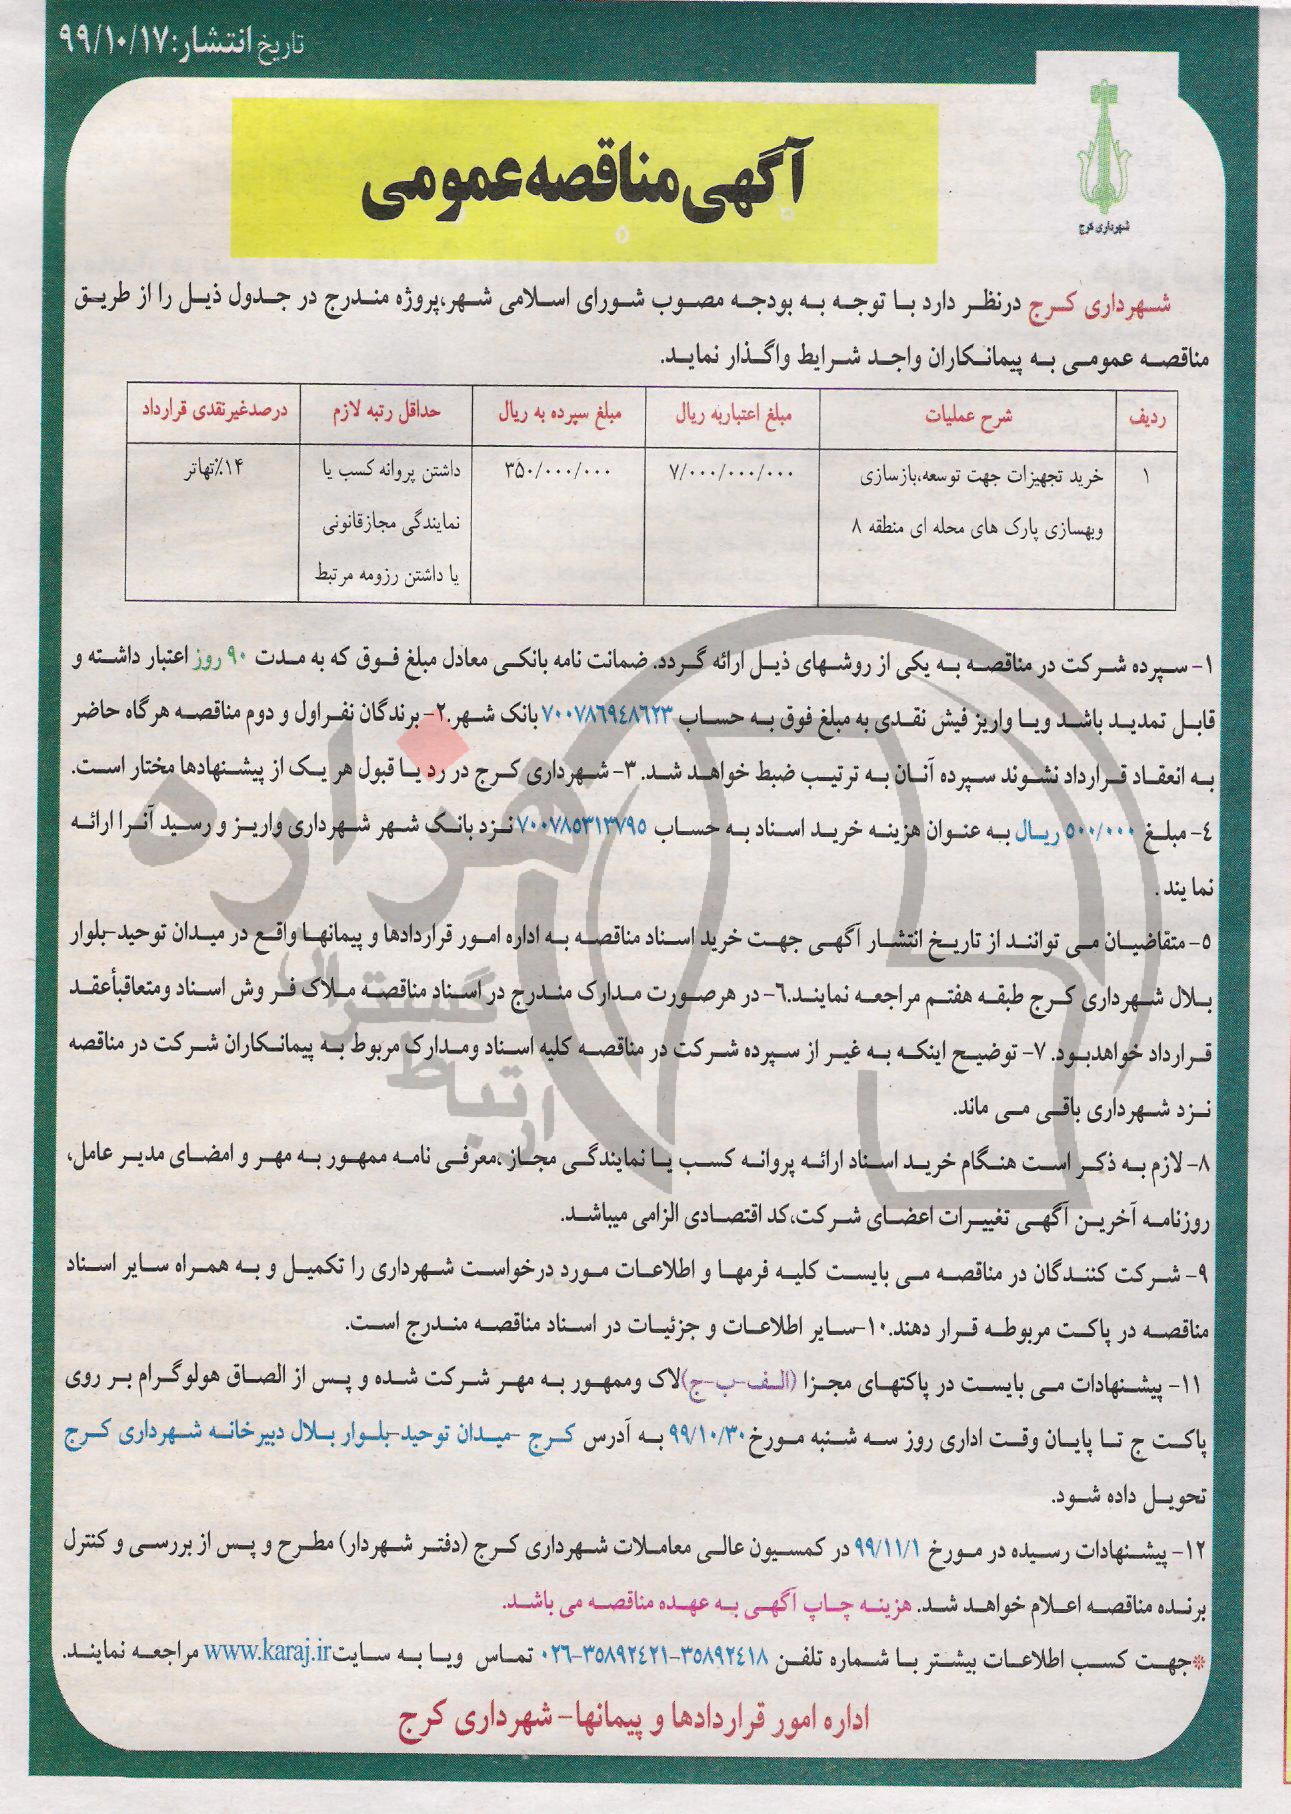 تاریخ انتشار: ۹۹/۱۰/۱۷
شهرداری کرج
آگهی مناقصه عمومی
شهرداری کرج درنظر دارد با توجه به بودجه مصوب شورای اسلامی شهر،پروژه مندرج در جدول ذیل را از طریق
مناقصه عمومی به پیمانکاران واجد شرایط واگذار نماید.
ردیف شرح عملیات مبلغ اعتباربه ریال مبلغ سپرده به ریال حداقل رتبه لازم درصدغیرنقدی قرارداد
۱ خرید تجهیزات جهت توسعه،بازسازی ۷/۰۰۰/۰۰۰/۰۰۰ ۳۵۰/۰۰۰/۰۰۰ داشتن پروانه کسب یا ۱۴٪تهاتر
وبهسازی پارک های محله ای منطقه ۸ نمایندگی مجازقانونی
یا داشتن رزومه مرتبط
۱- سپرده شرکت در مناقصه به یکی از روشهای ذیل ارائه گردد. ضمانت نامه بانکی معادل مبلغ فوق که به مدت ۹۰ روز اعتبار داشته و
قابل تمدید باشد ویا واریز فیش نقدی به مبلغ فوق به حساب ۷۰۰۷۸۶۹۴۸۶۲۳ بانک شهر.۲- برندگان نفراول و دوم مناقصه هرگاه حاضر
به انعقاد قرارداد نشوند سپرده آنان به ترتیب ضبط خواهد شد. ۳- شهرداری کرج در رد یا قبول هر یک از پیشنهادها مختار است.
۴- مبلغ ۵۰۰/۰۰۰ ریال به عنوان هزینه خرید اسناد به حساب ۷۰۰۷۸۵۳۱۳۷۹۵ نزد بانک شهر شهرداری واریز و رسید آنرا ارائه
نمایند.
۵- متقاضیان می توانند از تاریخ انتشار آگهی جهت خرید اسناد مناقصه به اداره امور قراردادها و پیمانها واقع در میدان توحید-بلوار
بلال شهرداری کرج طبقه هفتم مراجعه نمایند.۶- در هرصورت مدارک مندرج در اسناد مناقصه ملاک فروش اسناد ومتعاقبأعقد
قرارداد خواهدبود. ۷- توضیح اینکه به غیر از سپرده شرکت در مناقصه کلیه اسناد ومدارک مربوط به پیمانکاران شرکت در مناقصه
نزد شهرداری باقی می ماند.
۸- لازم به ذکر است هنگام خرید اسناد ارائه پروانه کسب یا نمایندگی مجاز ،معرفی نامه ممهور به مهر و امضای مدیر عامل،
روزنامه آخرین آگهی تغییرات اعضای شرکت،کد اقتصادی الزامی میباشد.
۹- شرکت کنندگان در مناقصه می بایست کلیه فرمها و اطلاعات مورد درخواست شهرداری را تکمیل و به همراه سایر اسناد
مناقصه در پاکت مربوطه قرار دهند.۱۰-سایر اطلاعات و جزئیات در اسناد مناقصه مندرج است.
۱۱- پیشنهادات می بایست در پاکتهای مجزا (الف-ب-ج)لاک وممهور به مهر شرکت شده و پس از الصاق هولوگرام بر روی
پاکت ج تا پایان وقت اداری روز سه شنبه مورخ۹۹/۱۰/۳۰ به آدرس کرج -میدان توحید-بلوار بلال دبیرخانه شهرداری کرج
تحویل داده شود.
۱۲- پیشنهادات رسیده در مورخ ۹۹/۱۱/۱ در کمسیون عالی معاملات شهرداری کرج (دفتر شهردار) مطرح و پس از بررسی و کنترل
برنده مناقصه اعلام خواهد شد. هزینه چاپ آگهی به عهده مناقصه می باشد.
*جهت کسب اطلاعات بیشتر با شماره تلفن ۳۵۸۹۲۴۱۸-۳۵۸۹۲۴۲۱-۰۲۶ تماس ویا به سایتwww.karaj.ir مراجعه نمایند.
اداره امور قراردادها و پیمانها- شهرداری کرج
هزاره
گستران
ارتباط